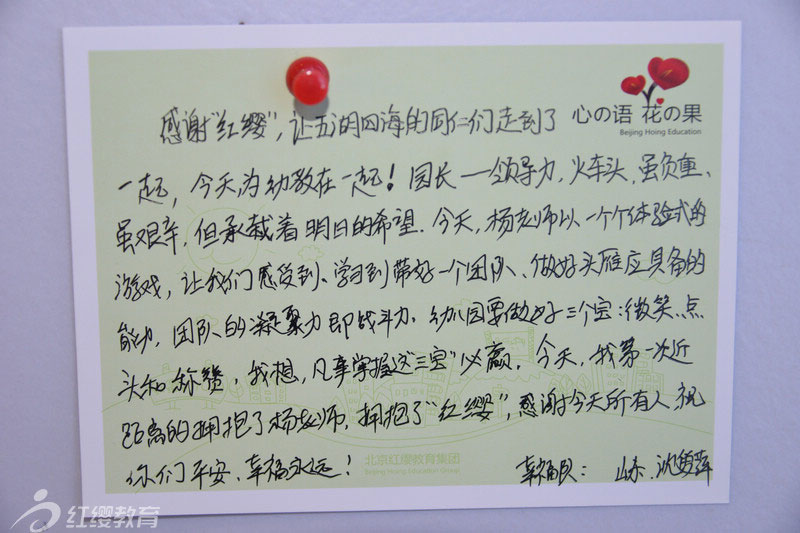 心の语 花の果
Beijing Hoing Education
感谢“红缨”，让五湖四海的同仁们走到了
一起，今天为幼教在一起！园长——领导力，火车头，虽负重、
虽艰辛，但承载着明日的希望。今天，杨老师以一个个体验式的
游戏，让我们感受到、学习到带好一个团队、做好头雁应具备的
能力，团队的凝聚力即战斗力。幼儿园要做好三个宝：微笑、点
头和称赞，我想，凡事掌握这“三宝”必赢。今天，我第一次近
距离的拥抱了杨老师，拥抱了“红缨”，感谢今天所有人，祝
你们平安、幸福永远！
幸福队： 山东、沈
北京红缨教育集团
Beijing Hoing Education Group
红缨教育